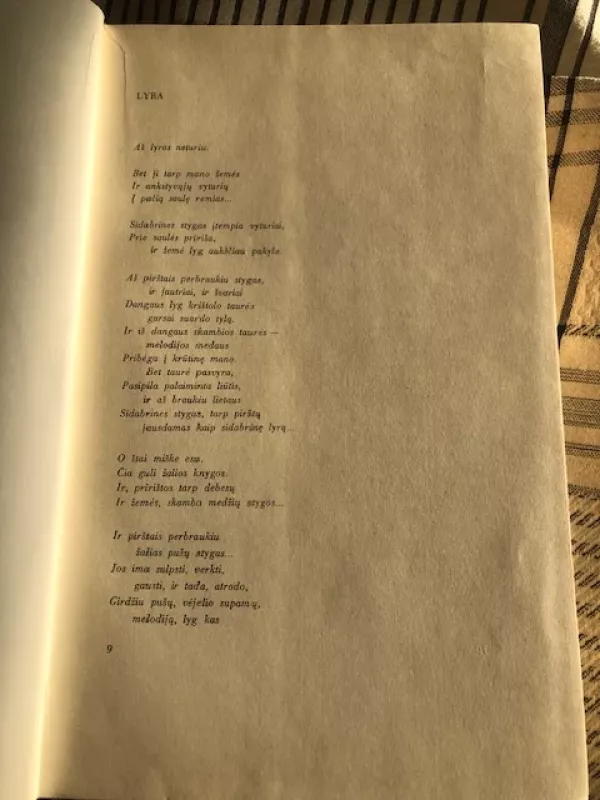 LYRA
Aš lyros neturiu.
Bet ji tarp mano žemės
Ir ankstyvųjų vyturių
Į pačią saulę remias...
Sidabrines stygas įtempia vyturiai,
Prie saulės pririša,
ir žemė lyg aukščiau pakyla.
Aš pirštais perbraukiu stygas,
ir jautriai, ir švariai
Dangaus lyg krištolo taurės
garsai suardo tylą.
Ir iš dangaus skambios taurės —
melodijos medaus
Pribėga į krūtinę mano.
Bet taurė pasvyra,
Pasipila palaiminta liūtis,
ir aš braukiu lietaus
Sidabrines stygas, tarp pirštų
jausdamas kaip sidabrinę lyrą...
O štai miške esu.
Čia guli žalios knygos.
Ir, pririštos tarp debesų
Ir žemės, skamba medžių stygos...
Ir pirštais perbraukiu
žalias pušų stygas...
Jos ima silpsti, verkti,
gausti, ir tada, atrodo,
Girdžiu pušų, vėjelio supamų,
melodiją, lyg kas
9